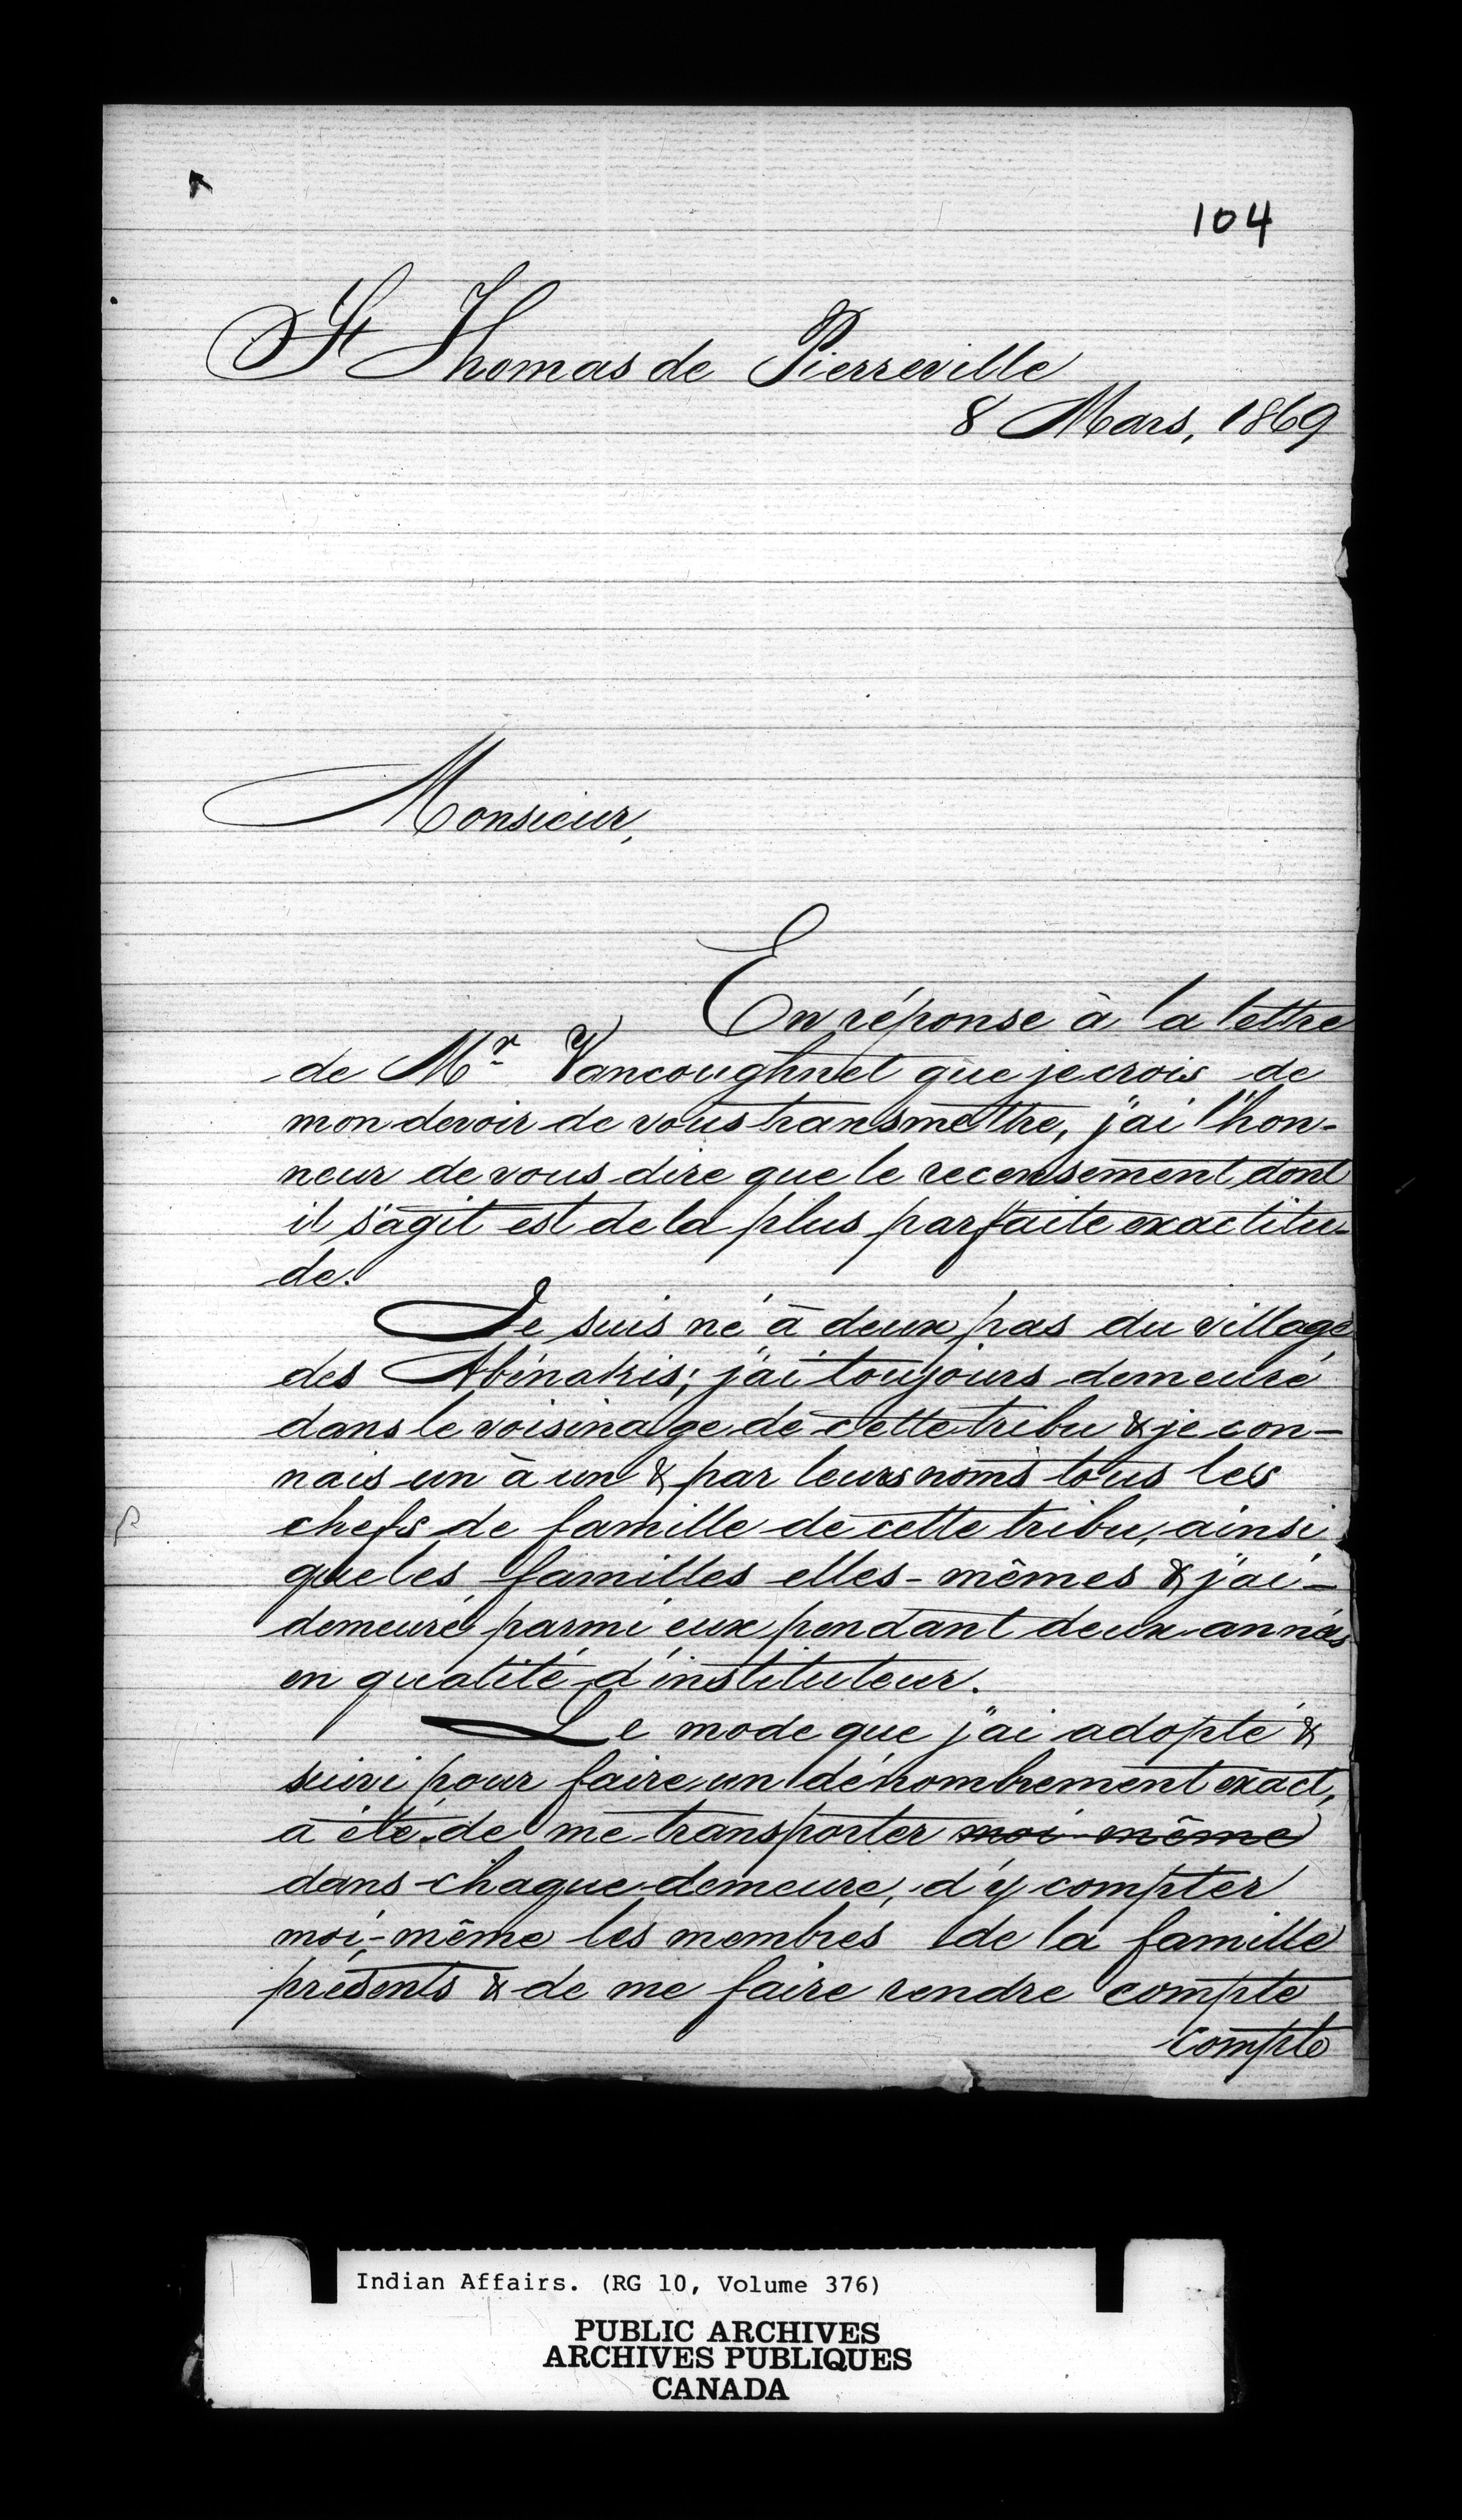 104
St Thomas de Pierreville
8 Mars, 1869
Monsieur,
En réponse à la lettre
de Mr Vancoughnet que je crois de
mon devoir de vous transmettre, j'ai l'hon-
neur de vous dire que le recensement dont
il s'agit est de la plus parfaite exactitu-
de.
Je suis né à deux pas du village
des Abénakis; j'ai toujours demeuré
dans le voisinage de cette tribu & je con-
nais un à un & par leurs noms tous les
chefs de famille de cette tribu, ainsi
que les familles elles-mêmes & j'ai
demeuré parmi eux pendant deux années
en qualité d'instituteur.
Le mode que j'ai adopté &
suivi pour faire un dénombrement exact,
a été de me transporter moi-même
dans chaque demeure, d'y compter
moi-même les membres de la famille
présents & de me faire rendre compte
compte
Indian Affairs. (RG 10, Volume 376)
PUBLIC ARCHIVES
ARCHIVES PUBLIQUES
CANADA